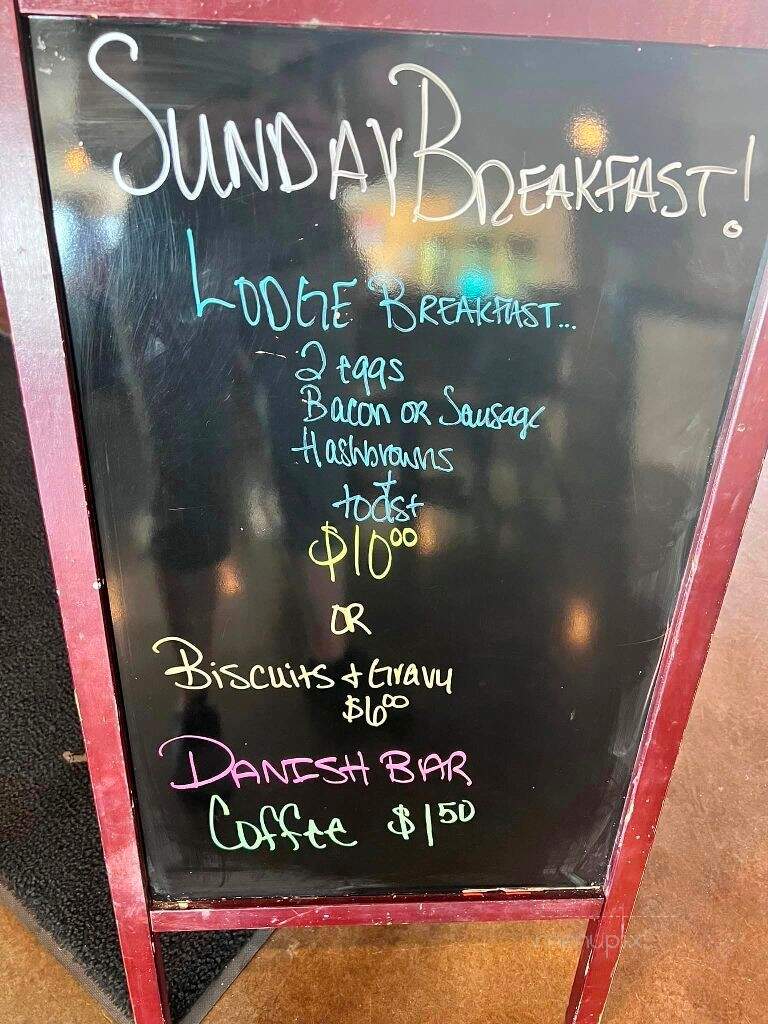 SUNDAY BREAKFAST!
LODGE BREAKFAST...
2 eggs
Bacon or Sausage
Hashbrowns
+
toast
$10.00
OR
Biscuits + Gravy
$6.00
DANISH BAR
Coffee $1.50
menupix